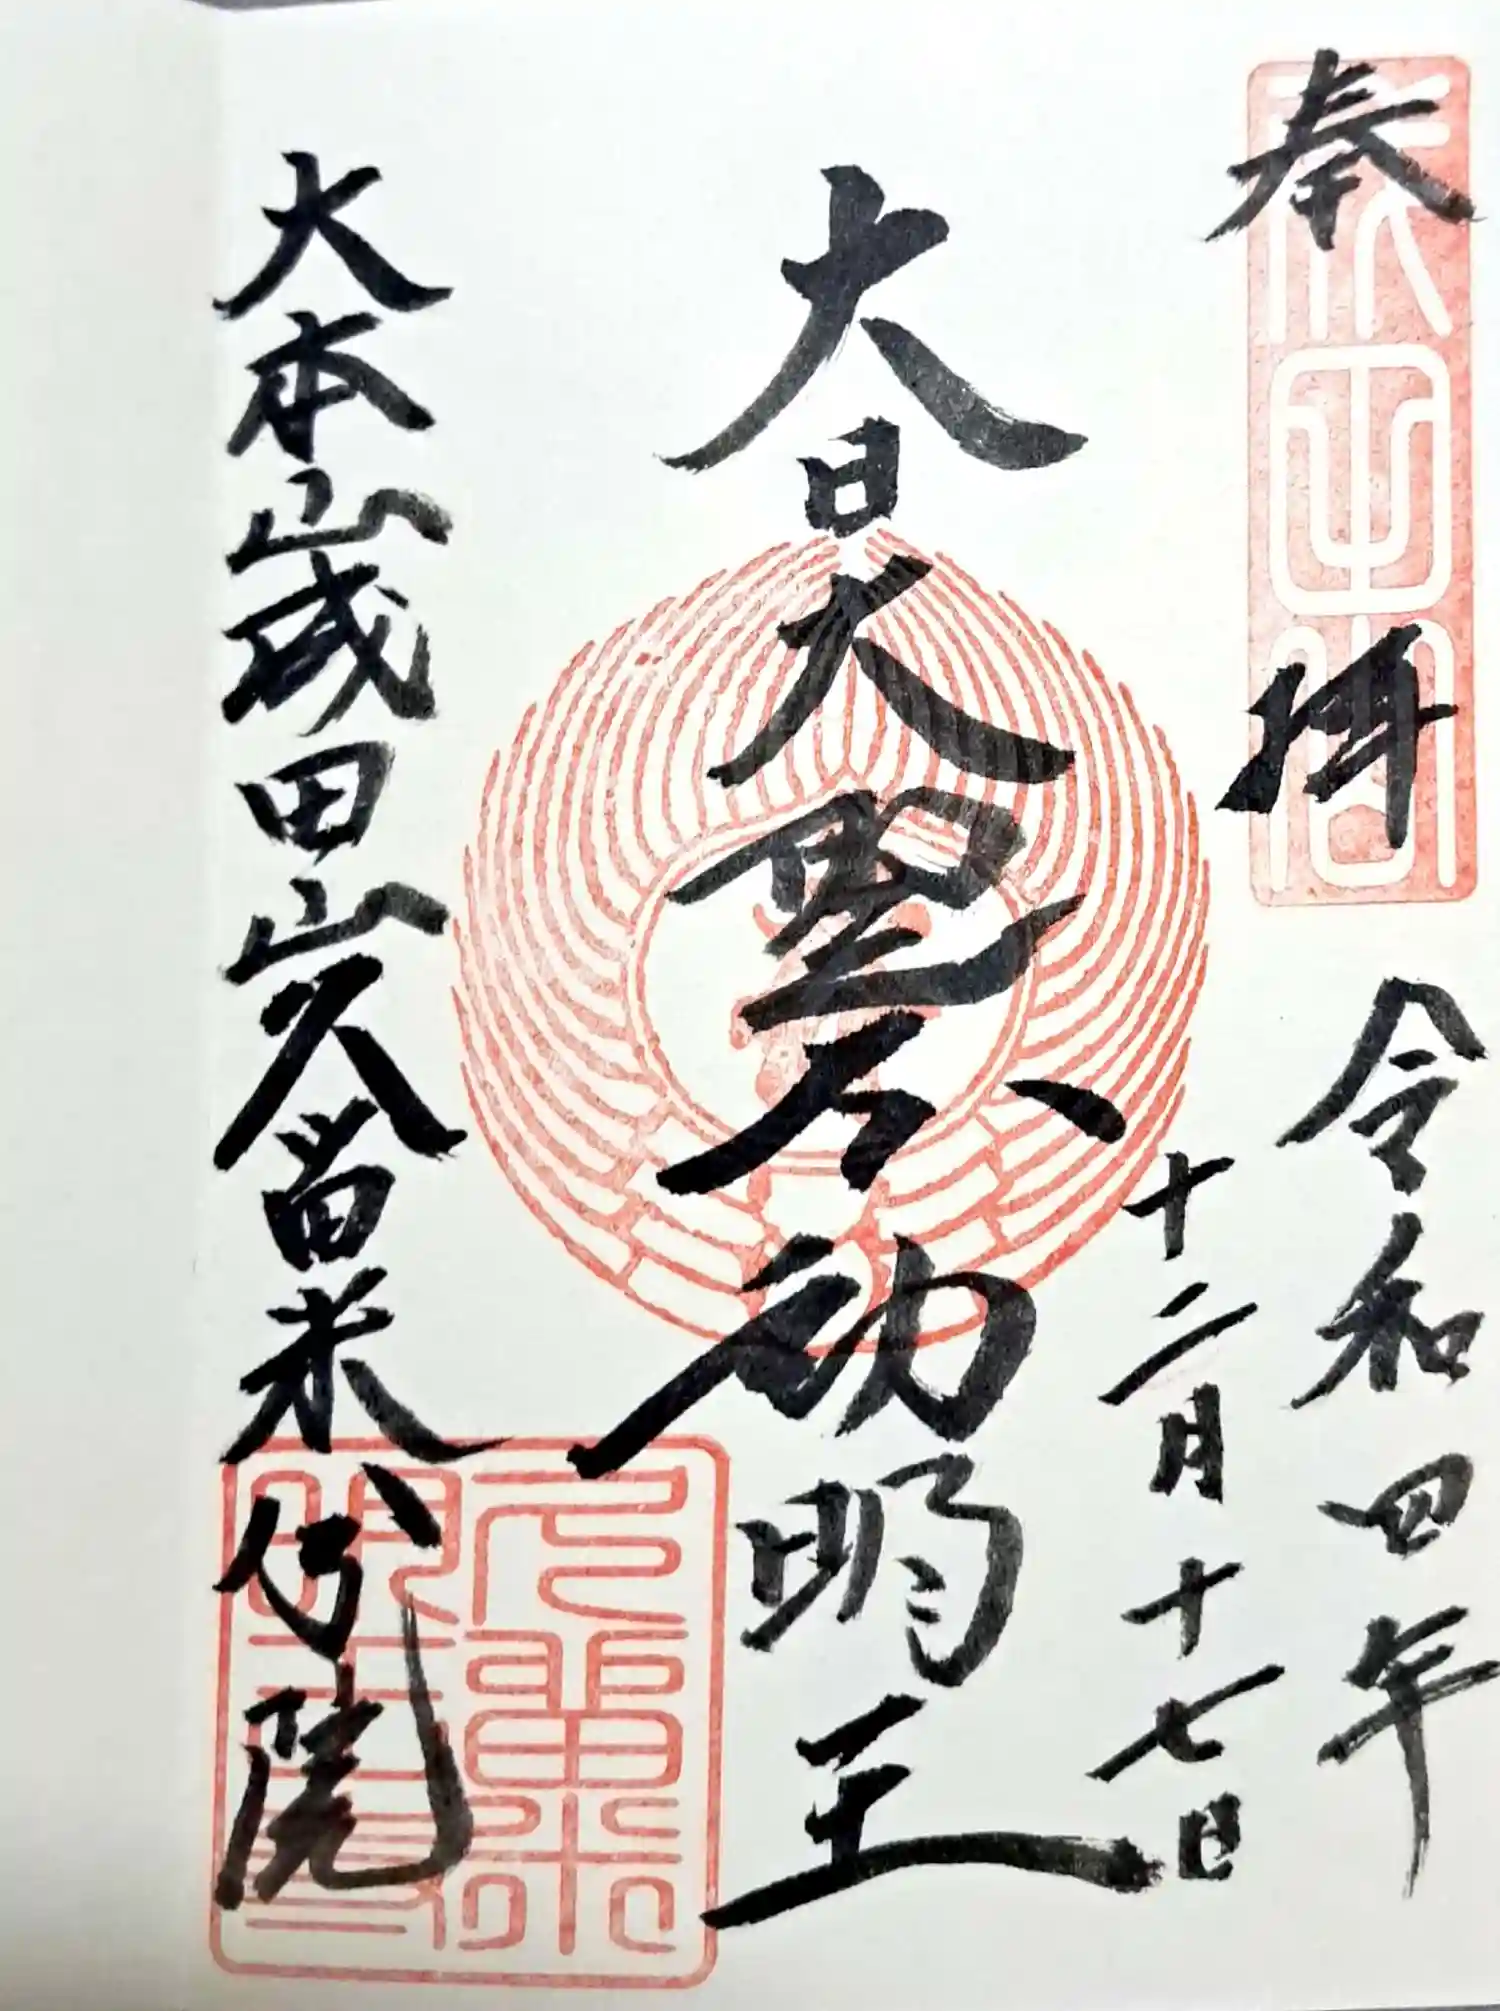 奉拝
令和四年
十二月十七日
大日大聖不動明王
大本山成田山久留米分院
成田山